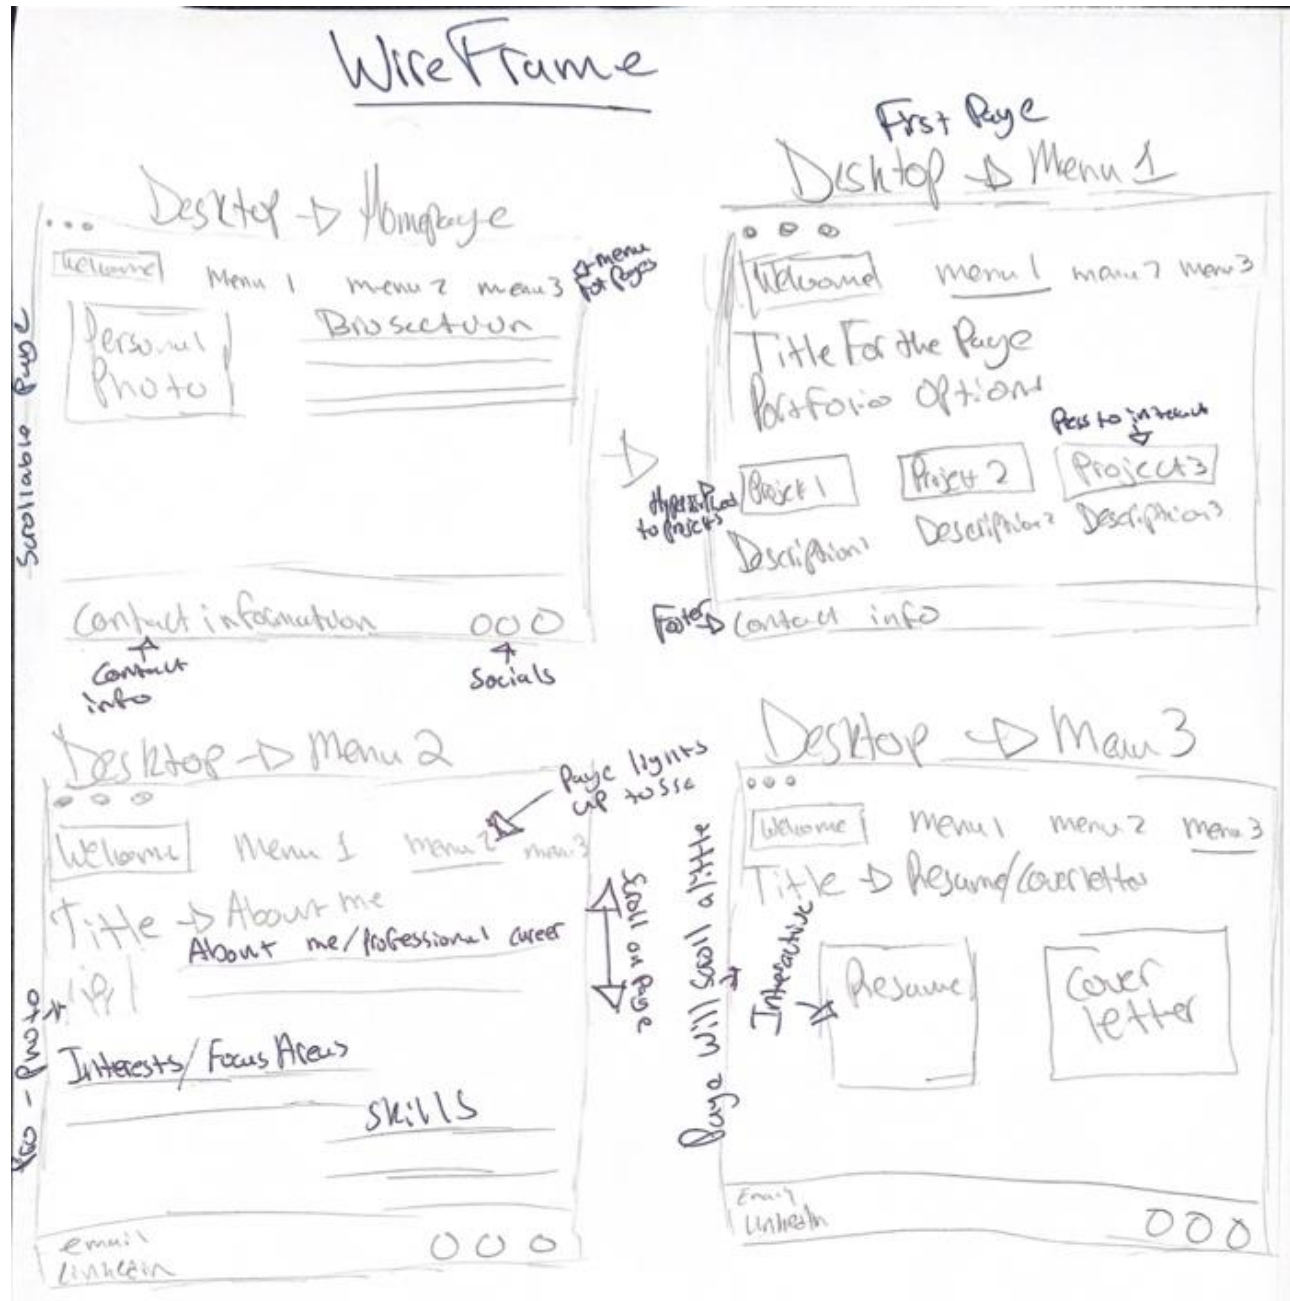 WireFrame
Desktop → Homepage
Welcome
Menu 1 menu 2 menu 3
← menu for pages
Personal
Photo
Bio section
Scrollable page
Contact information
Contact
info
Socials
First Page
Desktop → Menu 1
Welcome menu 1 menu 2 menu 3
Title For the Page
Portfolio Options
Press to interact
Project 1 Project 2 Project 3
to projects
Description 1 Description 2 Description 3
Footer →
Contact info
Desktop → Menu 2
Page lights
up to see
Welcome Menu 1 menu 2 menu 3
Title → About me
About me/professional career
Pro - Photo
Interests/Focus Areas
Skills
Scroll on page
email
linkedin
Desktop → Menu 3
Welcome menu 1 menu 2 menu 3
Title → Resume/Cover letter
Page will scroll a little
Interactive
Resume
Cover
letter
Email
LinkedIn